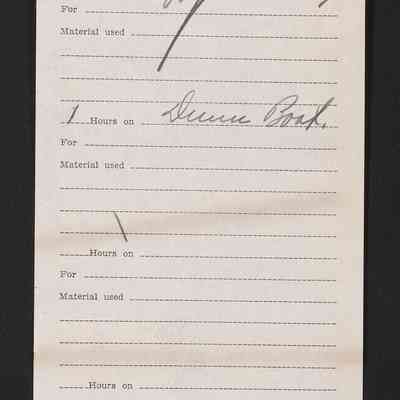 For
Material used
1 Hours on Dunn Boat.
For
Material used
Hours on
For
Material used
Hours on